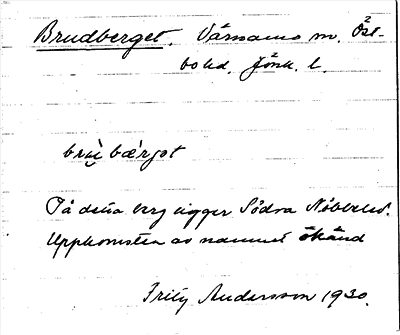 Brudberget. Värnamo sn. Öst-
bo hd. Jönk. l.
brù bærgot
På detta berg ligger Södra Nöbbeled.
Uppkomsten av namnet okänd
Fritz Andersson 1930.